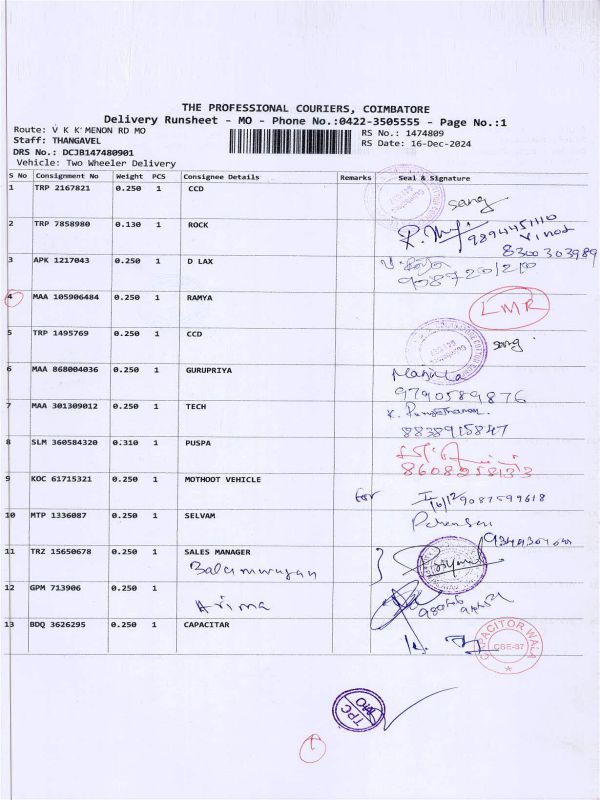 THE PROFESSIONAL COURIERS, COIMBATORE
Delivery Runsheet - MO - Phone No.:0422-3505555 - Page No.:1
Route: V K K MENON RD MO
RS No.: 1474809
Staff: THANGAVEL
RS Date: 16-Dec-2024
DRS No.: DCJB147480901
Vehicle: Two Wheeler Delivery
S No Consignment No Weight PCS Consignee Details Remarks Seal & Signature
1 TRP 2167821 0.250 1 CCD sang
2 TRP 7858980 0.130 1 ROCK 9894451110
Vinod
8300303989
3 APK 1217043 0.250 1 D LAX
4 MAA 105906484 0.250 1 RAMYA LMR
5 TRP 1495769 0.250 1 CCD sang
6 MAA 868004036 0.250 1 GURUPRIYA
9790589876
7 MAA 301309012 0.250 1 TECH
8838915847
8 SLM 360584320 0.310 1 PUSPA
8608258133
9 KOC 61715321 0.250 1 MOTHOOT VEHICLE For
16/12 9087599618
10 MTP 1336087 0.250 1 SELVAM
11 TRZ 15650678 0.250 1 SALES MANAGER
Balamurugan
12 GPM 713906 0.250 1
Arima
13 BDQ 3626295 0.250 1 CAPACITAR
CAPACITOR WALA
CBE-37
TPC
MO